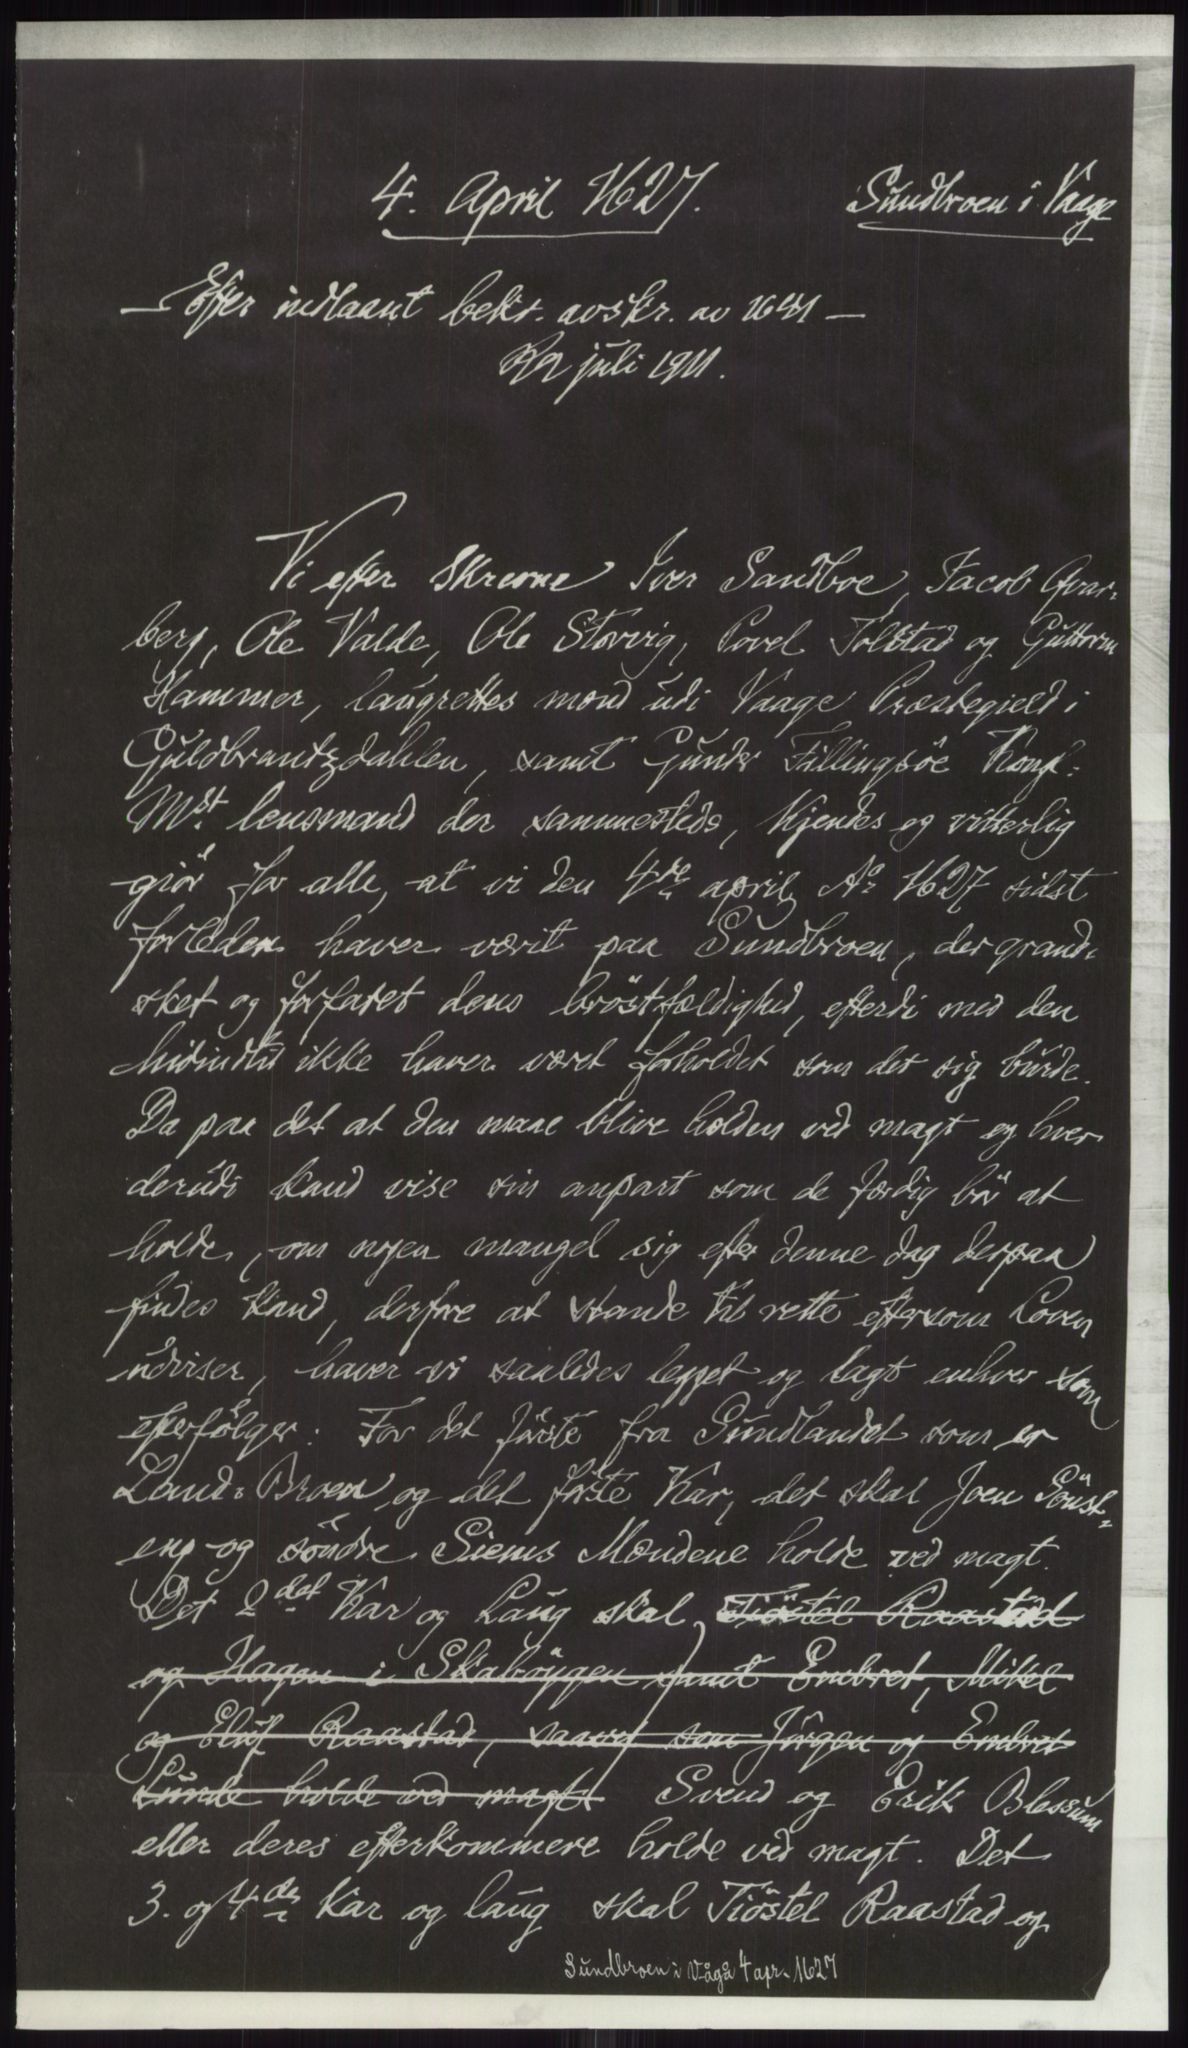 4. April 1627. Sundbroen i Vaage
— Efter indlaant bekr. avskr. av 1641 —
juli 1911.
Vi efter skrevne Iver Sandboe, Jacob Qvar-
berg, Ole Valde, Ole Storvig, Povel Tolstad og Guttorm
Hammer, laugrettes mænd udi Vaage Præstegield i
Guldbrantzdahlen, samt Gunder Tillingsöe Kong:
Mst. lensmand der sammesteds, kjendes og vitterlig
giör for alle, at vi den 4de april Ao 1627 sidst
forleden haver værit paa Sundbroen, der grand-
sket og forfaret dens bröstfældighed, efterdi med den
hidindtil ikke haver været forholdet som det sig burde.
Da paa det at den maae blive holden ved magt og hver
derudi kand vise sin anpart som de færdig bör at
holde, om nogen mangel sig efter denne dag derpaa
findes kand, derfore at stande til rette eftersom Loven
udviser, haver vi saaledes legget og lagt enhver som
efterfölger: For det förste fra Sundlandet som er
Land-Broen og det förste Kar, det skal Joen Sönst-
eng og söndre Siems Mændene holde ved magt.
Det 2det Kar og Laug skal Tiöstel Raastad
og Hagen i Skaböygen samt Embret, Mikel
og Eluf Raastad, saavel som Jörgen og Embret
Sunde holde ved magt. Svend og Erik Blessum
eller deres efterkommere holde ved magt. Det
3. og 4de Kar og laug skal Tiöstel Raastad og
Sundbroen i Vågå 4 apr. 1627